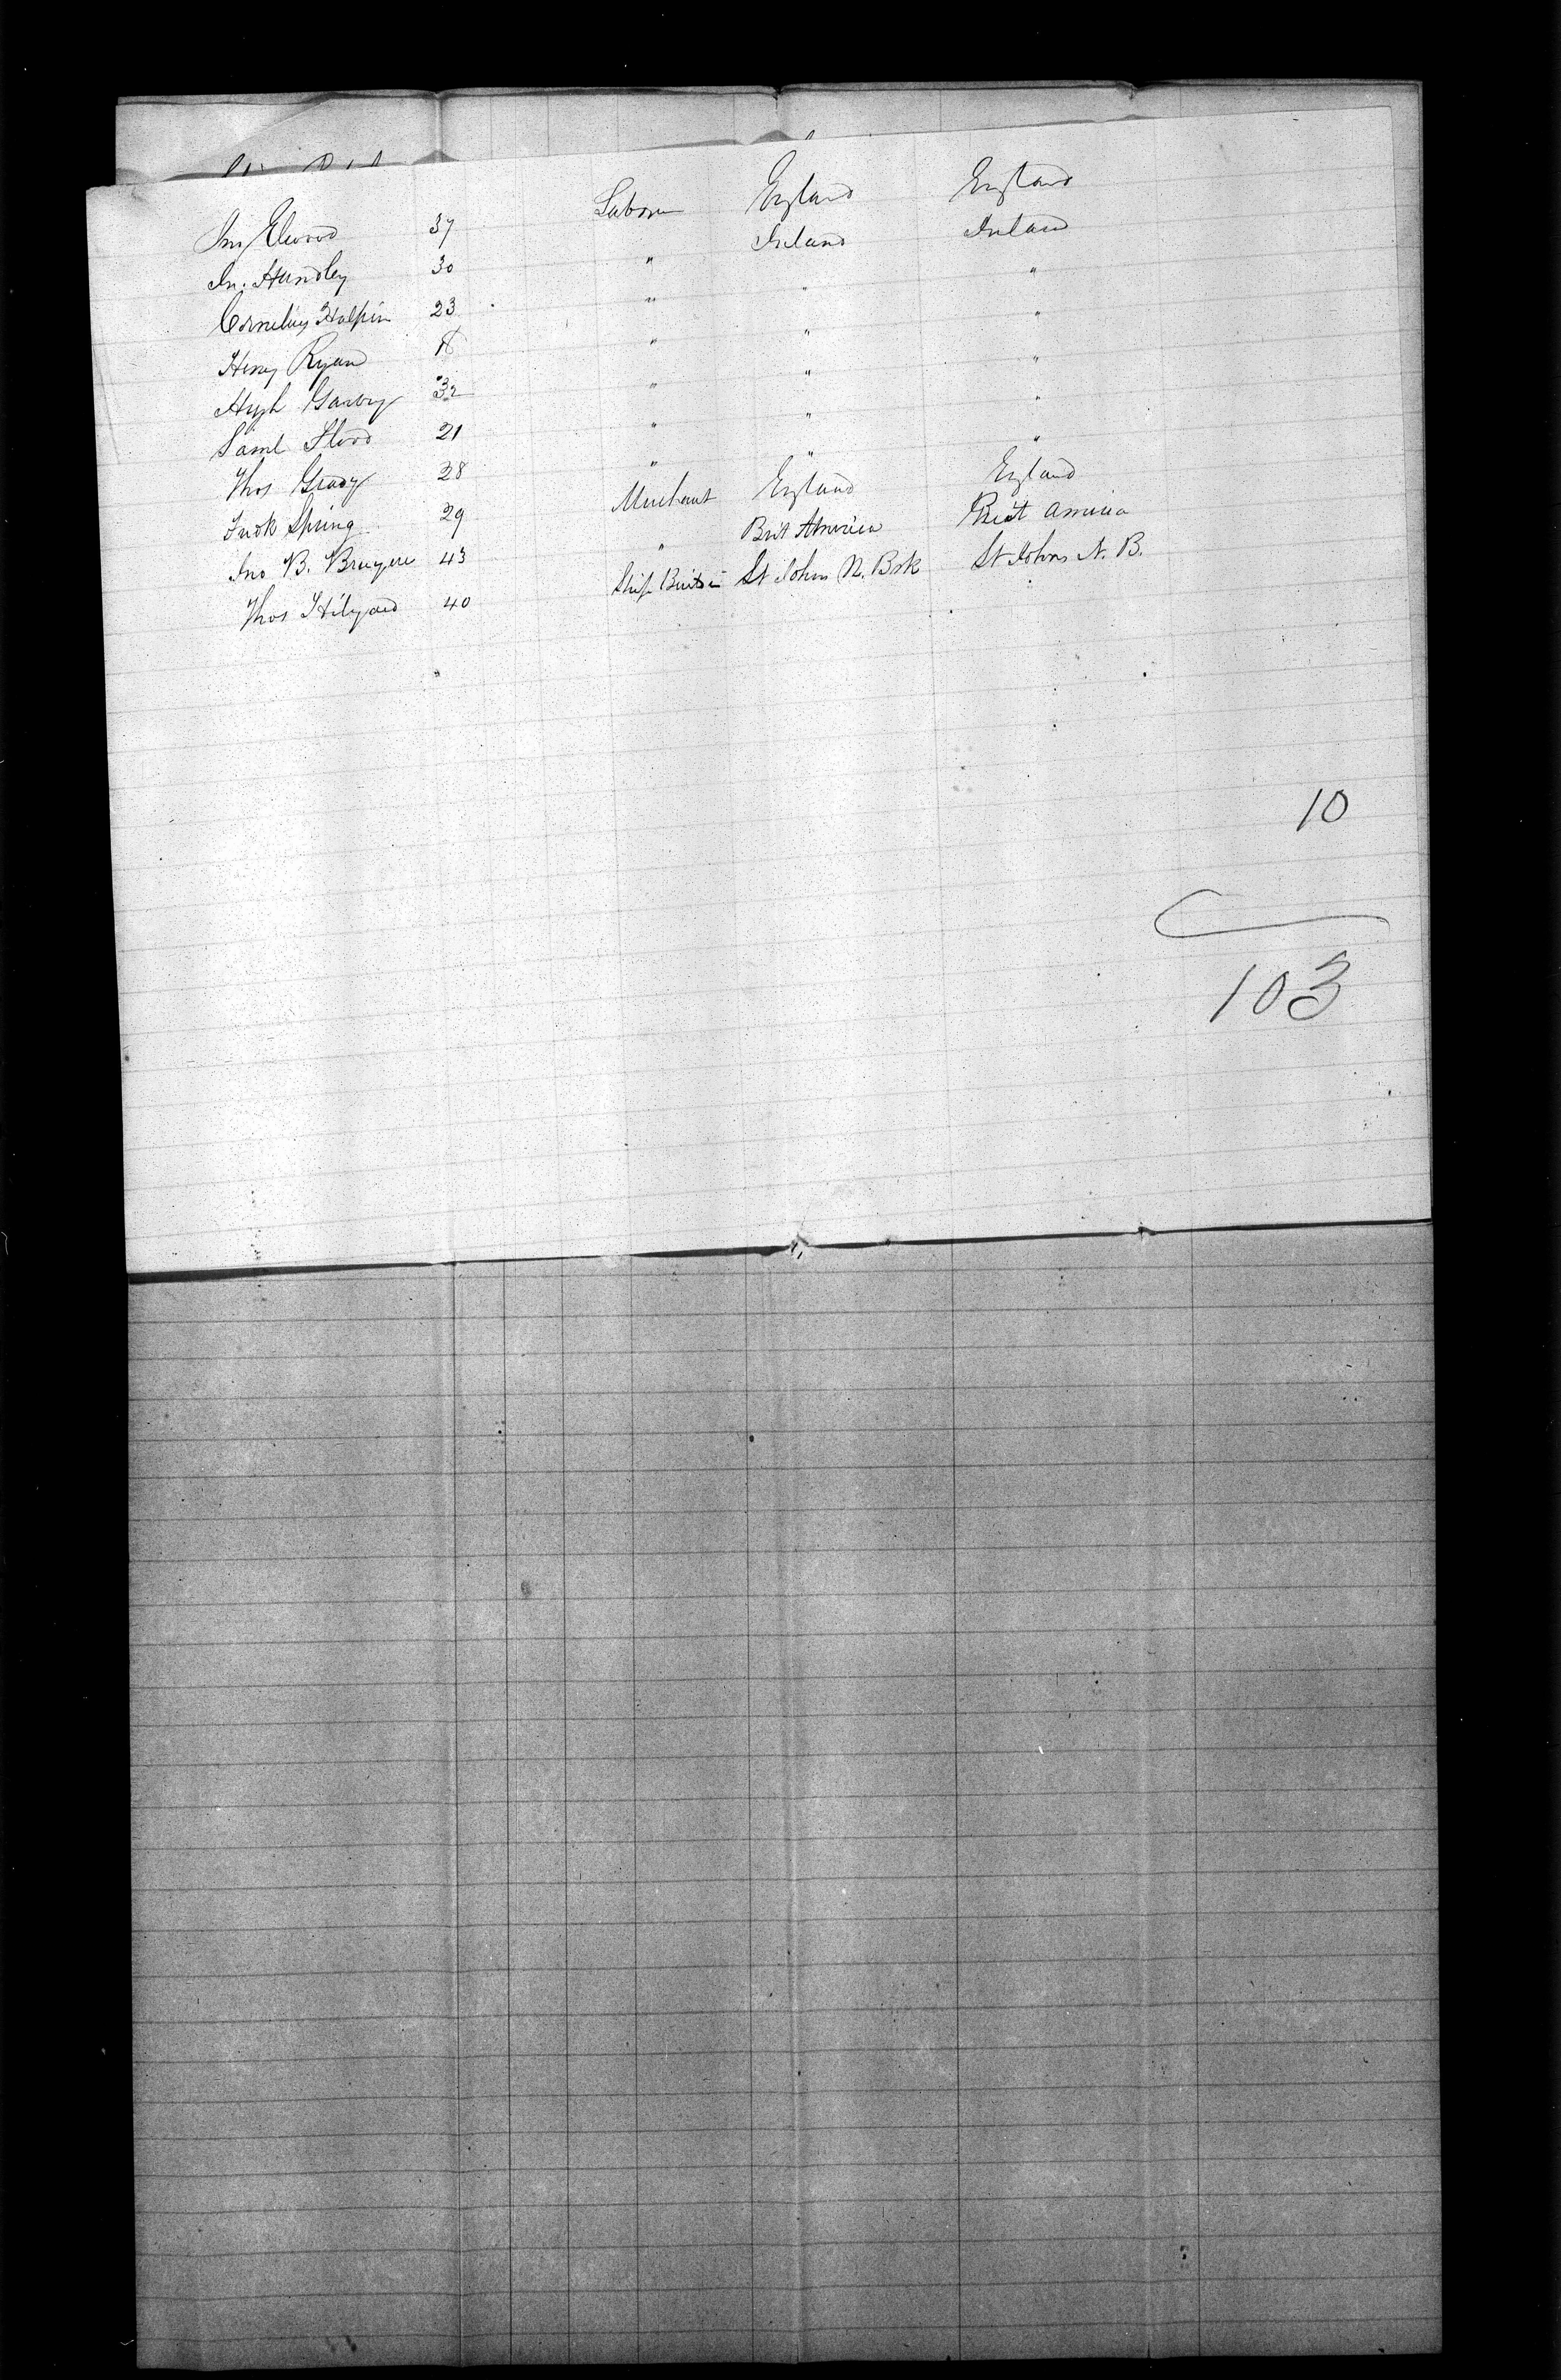 Jno Elwood 37 Laborer England England
Jn. Hundley 30 " Ireland Ireland
Cornelius Halpin 23 " " "
Henry Ryan 18 " " "
Hugh Garvey 32 " " "
Saml Flood 21 " " "
Thos Grady 28 " " "
Fredk Spring 29 Merchant England England
Jno B. Bruyere 43 " Brit America Brit America
Thos Hilyard 40 Ship Builder St Johns N. Bsk St Johns N. B.
10
103